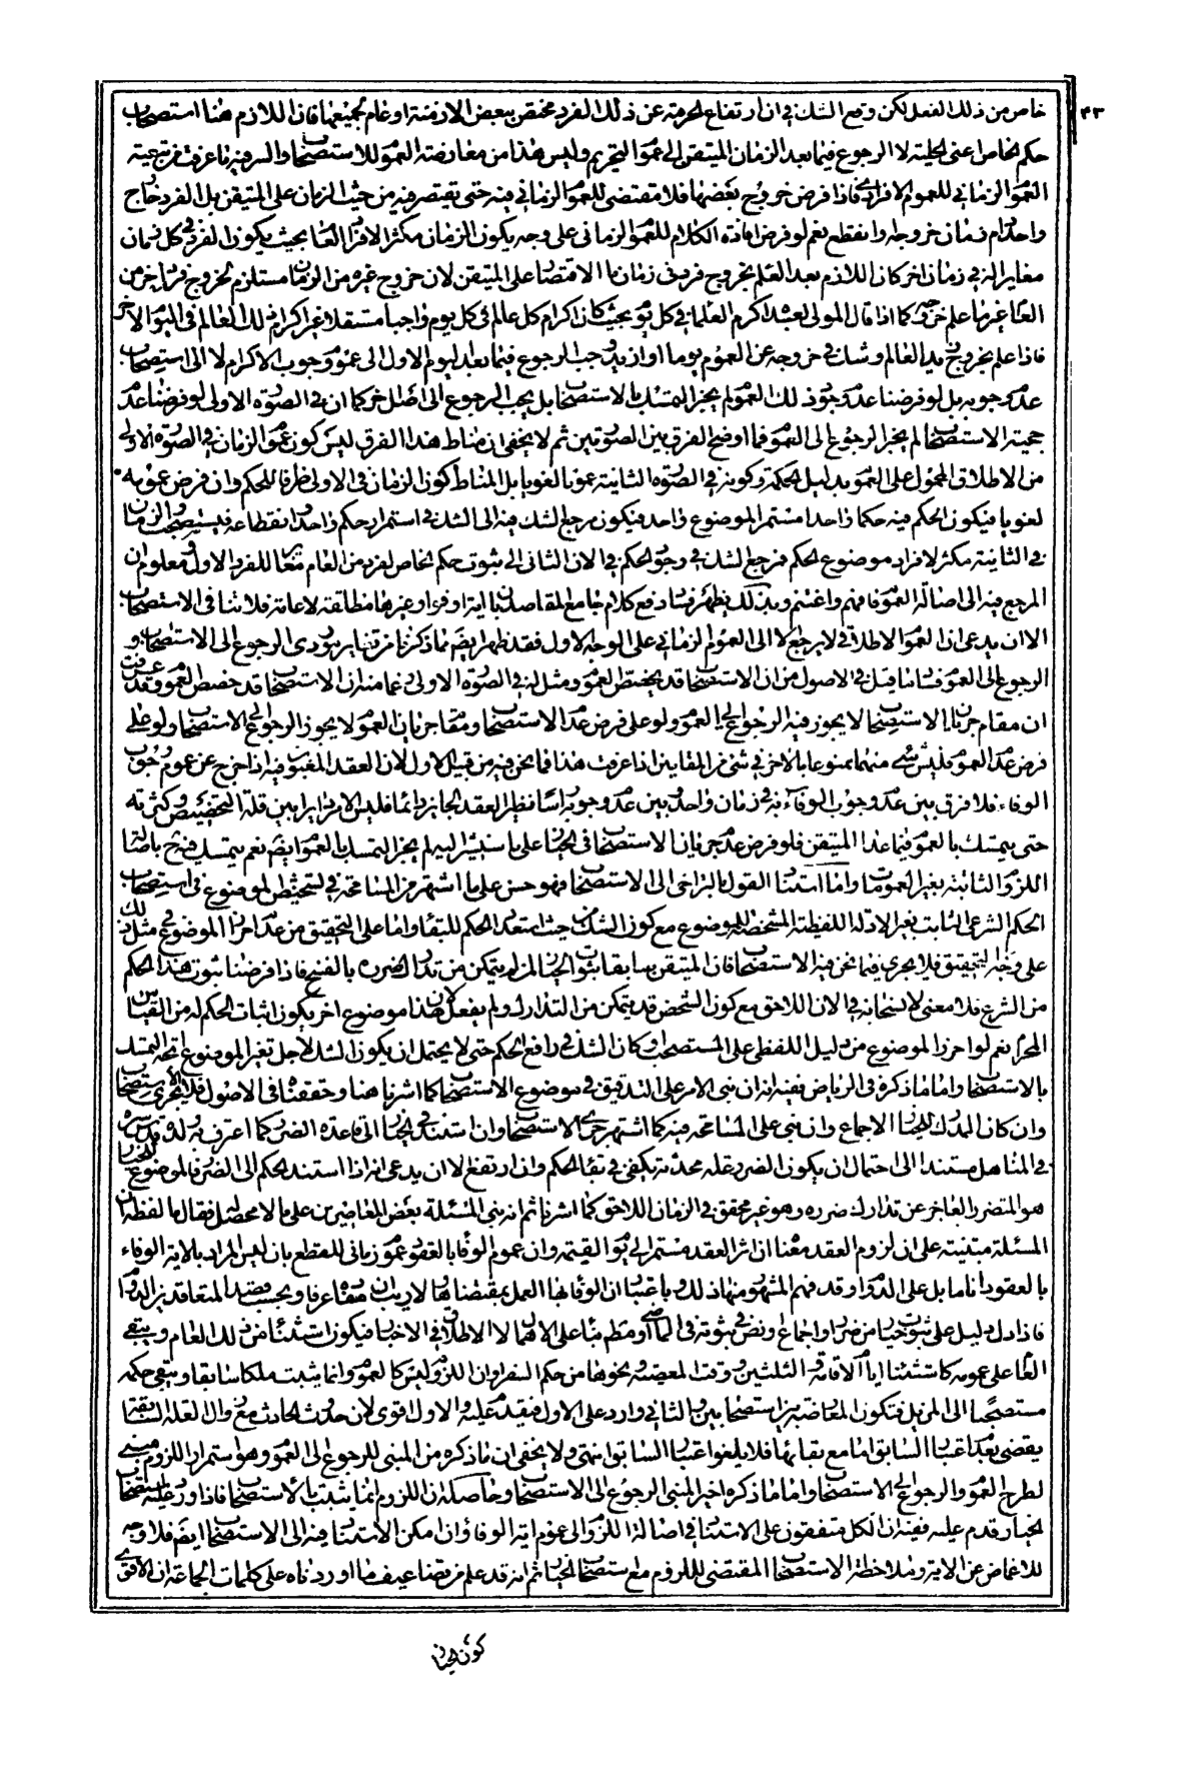 ٤٣
خاص من ذلك الفعل لكن وقع الشك في ان ارتفاع الحرمة عن ذلك الفرد مختص ببعض الازمنة او عام لجميعها فان اللازم هنا استصحاب
حكم الخاص اعنى الحلية لا الرجوع فيما بعد الزمان المتيقن الى عموم التحريم وليس هذا من معارضة العموم للاستصحاب والسر فيه ما عرفت من تبعية
العموم الزماني للعموم الافرادي فاذا فرض خروج بعضها فلا مقتضى للعموم الزماني فيه حتى يقتصر فيه من حيث الزمان على المتيقن بل الفرد الخارج
واحد دام زمان خروجه او انقطع نعم لو فرض افادة الكلام للعموم الزماني على وجه يكون الزمان مكثرا لافراد العام بحيث يكون الفرد في كل زمان
مغايرا له في زمان اخر كان اللازم بعد العلم بخروج فرد في زمان ما الاقتصار على المتيقن لان خروج غيره من الزمان مستلزم لخروج فرد اخر من
العام غير ما علم خروجه كما اذا قال المولى لعبده اكرم العلماء في كل يوم بحيث كان اكرام كل عالم في كل يوم واجبا مستقلا غير اكرام ذلك العالم في اليوم الاخر
فاذا علم بخروج زيد العالم وشك في خروجه عن العموم يوما او ازيد وجب الرجوع فيما بعد اليوم الاول الى عموم وجوب الاكرام لا الى استصحاب
عدم وجوبه بل لو فرضنا عدم وجود ذلك العموم لم يجز التمسك بالاستصحاب بل يجب الرجوع الى اصل اخر كما ان في الصورة الاولى لو فرضنا عدم
حجية الاستصحاب لم يجز الرجوع الى العموم فما اوضح الفرق بين الصورتين ثم لا يخفى ان مناط هذا الفرق ليس كون عموم الزمان في الصورة الاولى
من الاطلاق المحمول على العموم بدليل الحكمة وكونه في الصورة الثانية عموما لغويا بل المناط كون الزمان في الاولى ظرفا للحكم وان فرض عمومه
لغويا فيكون الحكم فيه حكما واحدا مستمرا لموضوع واحد فيكون مرجع الشك فيه الى الشك في استمرار حكم واحد وانقطاعه فيستصحب والزمان
في الثانية مكثر لافراد موضوع الحكم فمرجع الشك في وجود الحكم في الان الثاني الى ثبوت حكم الخاص لفرد من العام مغاير للفرد الاول ومعلوم ان
المرجع فيه الى اصالة العموم فافهم واغتنم وبذلك يظهر فساد دفع كلام جامع المقاصد بان اية اوفوا وغيرها مطلقة لا عامة فلا تنافى الاستصحاب
الا ان يدعى ان العموم الاطلاقي لا يرجع الا الى العموم الزماني على الوجه الاول فقد ظهر ايضا مما ذكرنا من تغاير موردى الرجوع الى الاستصحاب و
الرجوع الى العموم فساد ما قيل في الاصول من ان الاستصحاب قد يخصص العموم ومثل له في الصورة الاولى زعما منه ان الاستصحاب قد خصص العموم وقد عرفت
ان مقام جريان الاستصحاب لا يجوز فيه الرجوع الى العموم ولو على فرض عدم الاستصحاب ومقام جريان العموم لا يجوز الرجوع الى الاستصحاب ولو على
فرض عدم العموم فليس شيء منهما ممنوعا بالاخر في شئ من المقامين اذا عرفت هذا فما نحن فيه من قبيل الاول لان العقد المغبون فيه اذا خرج عن عموم وجوب
الوفاء فلا فرق بين عدم وجوب الوفاء به في زمان واحد وبين عدم وجوبه راسا نظير العقد الجايز دائما فليس الامر دايرا بين قلة التخصيص وكثرته
حتى يتمسك بالعموم فيما عدا المتيقن فلو فرض عدم جريان الاستصحاب في الخيار على ما سنشير اليه لم يجز التمسك بالعموم ايضا نعم يتمسك فيه ح باصالة
اللزوم الثابتة بغير العمومات واما استناد القول بالتراخى الى الاستصحاب فهو حسن على ما اشتهر من المسامحة في تشخيص الموضوع في استصحاب
الحكم الشرعى الثابت بغير الادلة اللفظية المشخصة للموضوع مع كون الشك من حيث استعداد الحكم للبقاء واما على التحقيق من عدم احراز الموضوع في مثل ذلك
على وجه التحقيق فلا يجرى فيما نحن فيه الاستصحاب فان المتيقن سابقا ثبوت الخيار لمن لم يتمكن من تدارك ضرره بالفسخ فاذا فرضنا ثبوت هذا الحكم
من الشرع فلا معنى لانسحابه في الان اللاحق مع كون الشخص قد تمكن من التدارك ولم يفعل لان هذا موضوع اخر يكون اثبات الحكم له من القياس
المحرم نعم لو احرز الموضوع من دليل لفظى على المستصحب او كان الشك في رافع الحكم حتى لا يحتمل ان يكون الشك لاجل تغير الموضوع اتجه التمسك
بالاستصحاب واما ما ذكره في الرياض ففيه انه ان بنى الامر على التدقيق في موضوع الاستصحاب كما اشرنا هنا وحققناه في الاصول فلا يجرى الاستصحاب
وان كان المدرك للخيار الاجماع وان بنى على المسامحة فيه كما اشتهر جرى الاستصحاب وان استند في الخيار الى قاعدة الضرر كما اعترف به ولده قدس سره
في المناهل مستندا الى احتمال ان يكون الضرر علة محدثة يكفى في بقاء الحكم وان ارتفع الا ان يدعى انه اذا استند الحكم الى الضرر فالموضوع للخيار
هو المتضرر العاجز عن تدارك ضرره وهو غير محقق في الزمان اللاحق كما اشرنا ثم انه بنى المسئلة بعض المعاصرين على ما لا محصل له فقال ما لفظه ان
المسئلة مبتنية على ان لزوم العقد معناه ان اثر العقد مستمر الى يوم القيمة وان عموم الوفاء بالعقود عموم زمانى للقطع بان ليس المراد بالاية الوفاء
بالعقود انا ما بل على الدوام وقد فهم المشهور منها ذلك وباعتبار ان الوفاء بها العمل بمقتضاها ولا ريب ان مفاده عرفا وبحسب قصد المتعاقدين الدوام
فاذا دل دليل على ثبوت خيار من ضرر او اجماع او نص في ثبوته في الماضى او مطلقا بناء على الاهمال لا الاطلاق في الاخبار فيكون استثناء من ذلك العام ويبقى
العام على عمومه كاستثناء ايام الاقامة والثلثين ووقت المعصية ونحوها من حكم السفر او ان اللزوم ليس كالعموم وانما يثبت ملكا سابقا ويبقى حكمه
مستصحبا الى المزيل فتكون المعارضة بين استصحابين والثاني وارد على الاول فيقدم عليه والاول اقوى لان حدوث الحادث مع زوال العلة السابقة
يقضى بعدم اعتبار السابق اما مع بقائها فلا يلغو اعتبار السابق انتهى ولا يخفى ان ما ذكره من المبنى للرجوع الى العموم وهو استمرار اللزوم مبنى
لطرح العموم والرجوع الى الاستصحاب واما ما ذكره اخيرا لمبنى الرجوع الى الاستصحاب وحاصله ان اللزوم انما يثبت بالاستصحاب فاذا ورد عليه استصحاب
الخيار قدم عليه ففيه ان الكل متفقون على الاستناد في اصالة اللزوم الى عموم اية الوفاء وان امكن الاستناد فيه الى الاستصحاب ايضا فلا وجه
للاغماض عن الاية وملاحظة الاستصحاب المقتضى للزوم مع استصحاب الخيار ثم انه قد علم من تضاعيف ما اوردناه على كلمات الجماعة ان الاقوى
كون الخيار